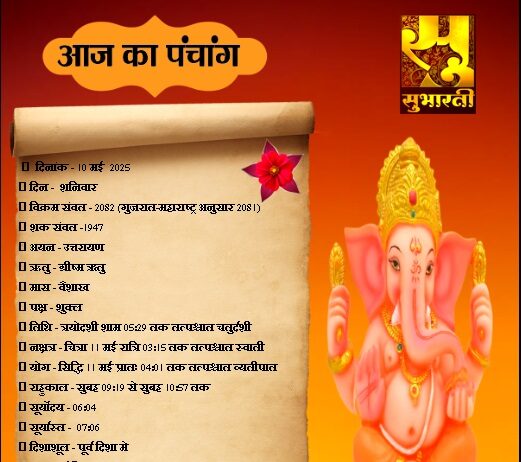 आज का पंचांग
सुभारती
दिनाक - 10 मई 2025
दिन - शनिवार
विक्रम संवत - 2082 (गुजरात-महाराष्ट्र अनुसार 2081)
शक संवत -1947
अयन - उत्तरायण
ऋतु - ग्रीष्म ऋतु
मास - वैशाख
पक्ष - शुक्ल
तिथि - त्रयोदशी शाम 05:29 तक तत्पश्चात चतुर्दशी
नक्षत्र - चित्रा 11 मई रात्रि 03:15 तक तत्पश्चात स्वाती
योग - सिद्धि 11 मई प्रातः 04:01 तक तत्पश्चात व्यतीपात
राहुकाल - सुबह 09:19 से सुबह 10:57 तक
सूर्योदय - 06:04
सूर्यास्त - 07:06
दिशाशूल - पूर्व दिशा मे